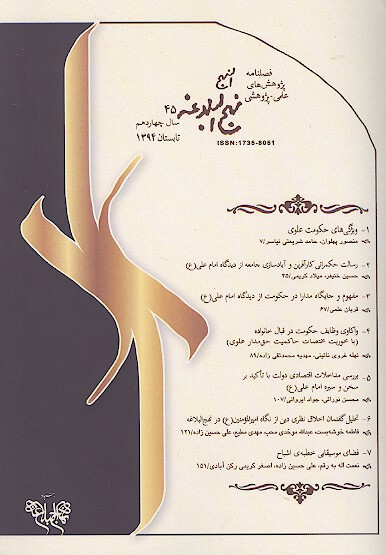 فصلنامه
پژوهش‌های
علمی-پژوهشی
نهج البلاغه
۴۵
سال چهاردهم
تابستان ۱۳۹۴
ISSN:1735-8051
۱- ویژگی‌های حکومت علوی
منصور پهلوان، حامد شریعتی نیاسر/۷
۲- رسالت حکمرانی کارآفرین و آبادسازی جامعه از دیدگاه امام علی(ع)
حسین خنیفر، میلاد کریمی/۲۵
۳- مفهوم و جایگاه مدارا در حکومت از دیدگاه امام علی(ع)
قربان علمی/۶۷
۴- واکاوی وظایف حکومت در قبال خانواده
(با محوریت مختصات حاکمیت حق‌مدار علوی)
نهله غروی نائینی، مهدیه محمدتقی زاده/۸۹
۵- بررسی مداخلات اقتصادی دولت با تأکید بر
سخن و سیره امام علی(ع)
محسن نورائی، جواد ایروانی/۱۰۷
۶- تحلیل گفتمان اخلاق نظری دین از نگاه امیرالمؤمنین(ع) در نهج‌البلاغه
فاطمه خوشه‌بست، عبدالله موحدی محب، مهدی مطیع، علی حسین زاده/۱۲۱
۷- فضای موسیقایی خطبه‌ی اشباح
نعمت اله به رقم، علی حسین زاده، اصغر کریمی رکن آبادی/۱۵۱